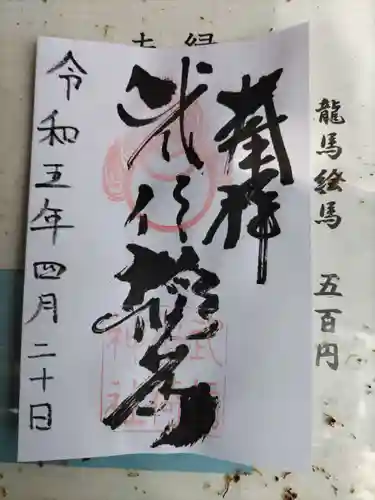 龍馬絵馬 五百円
奉拝
武信稲荷
令和五年四月二十日